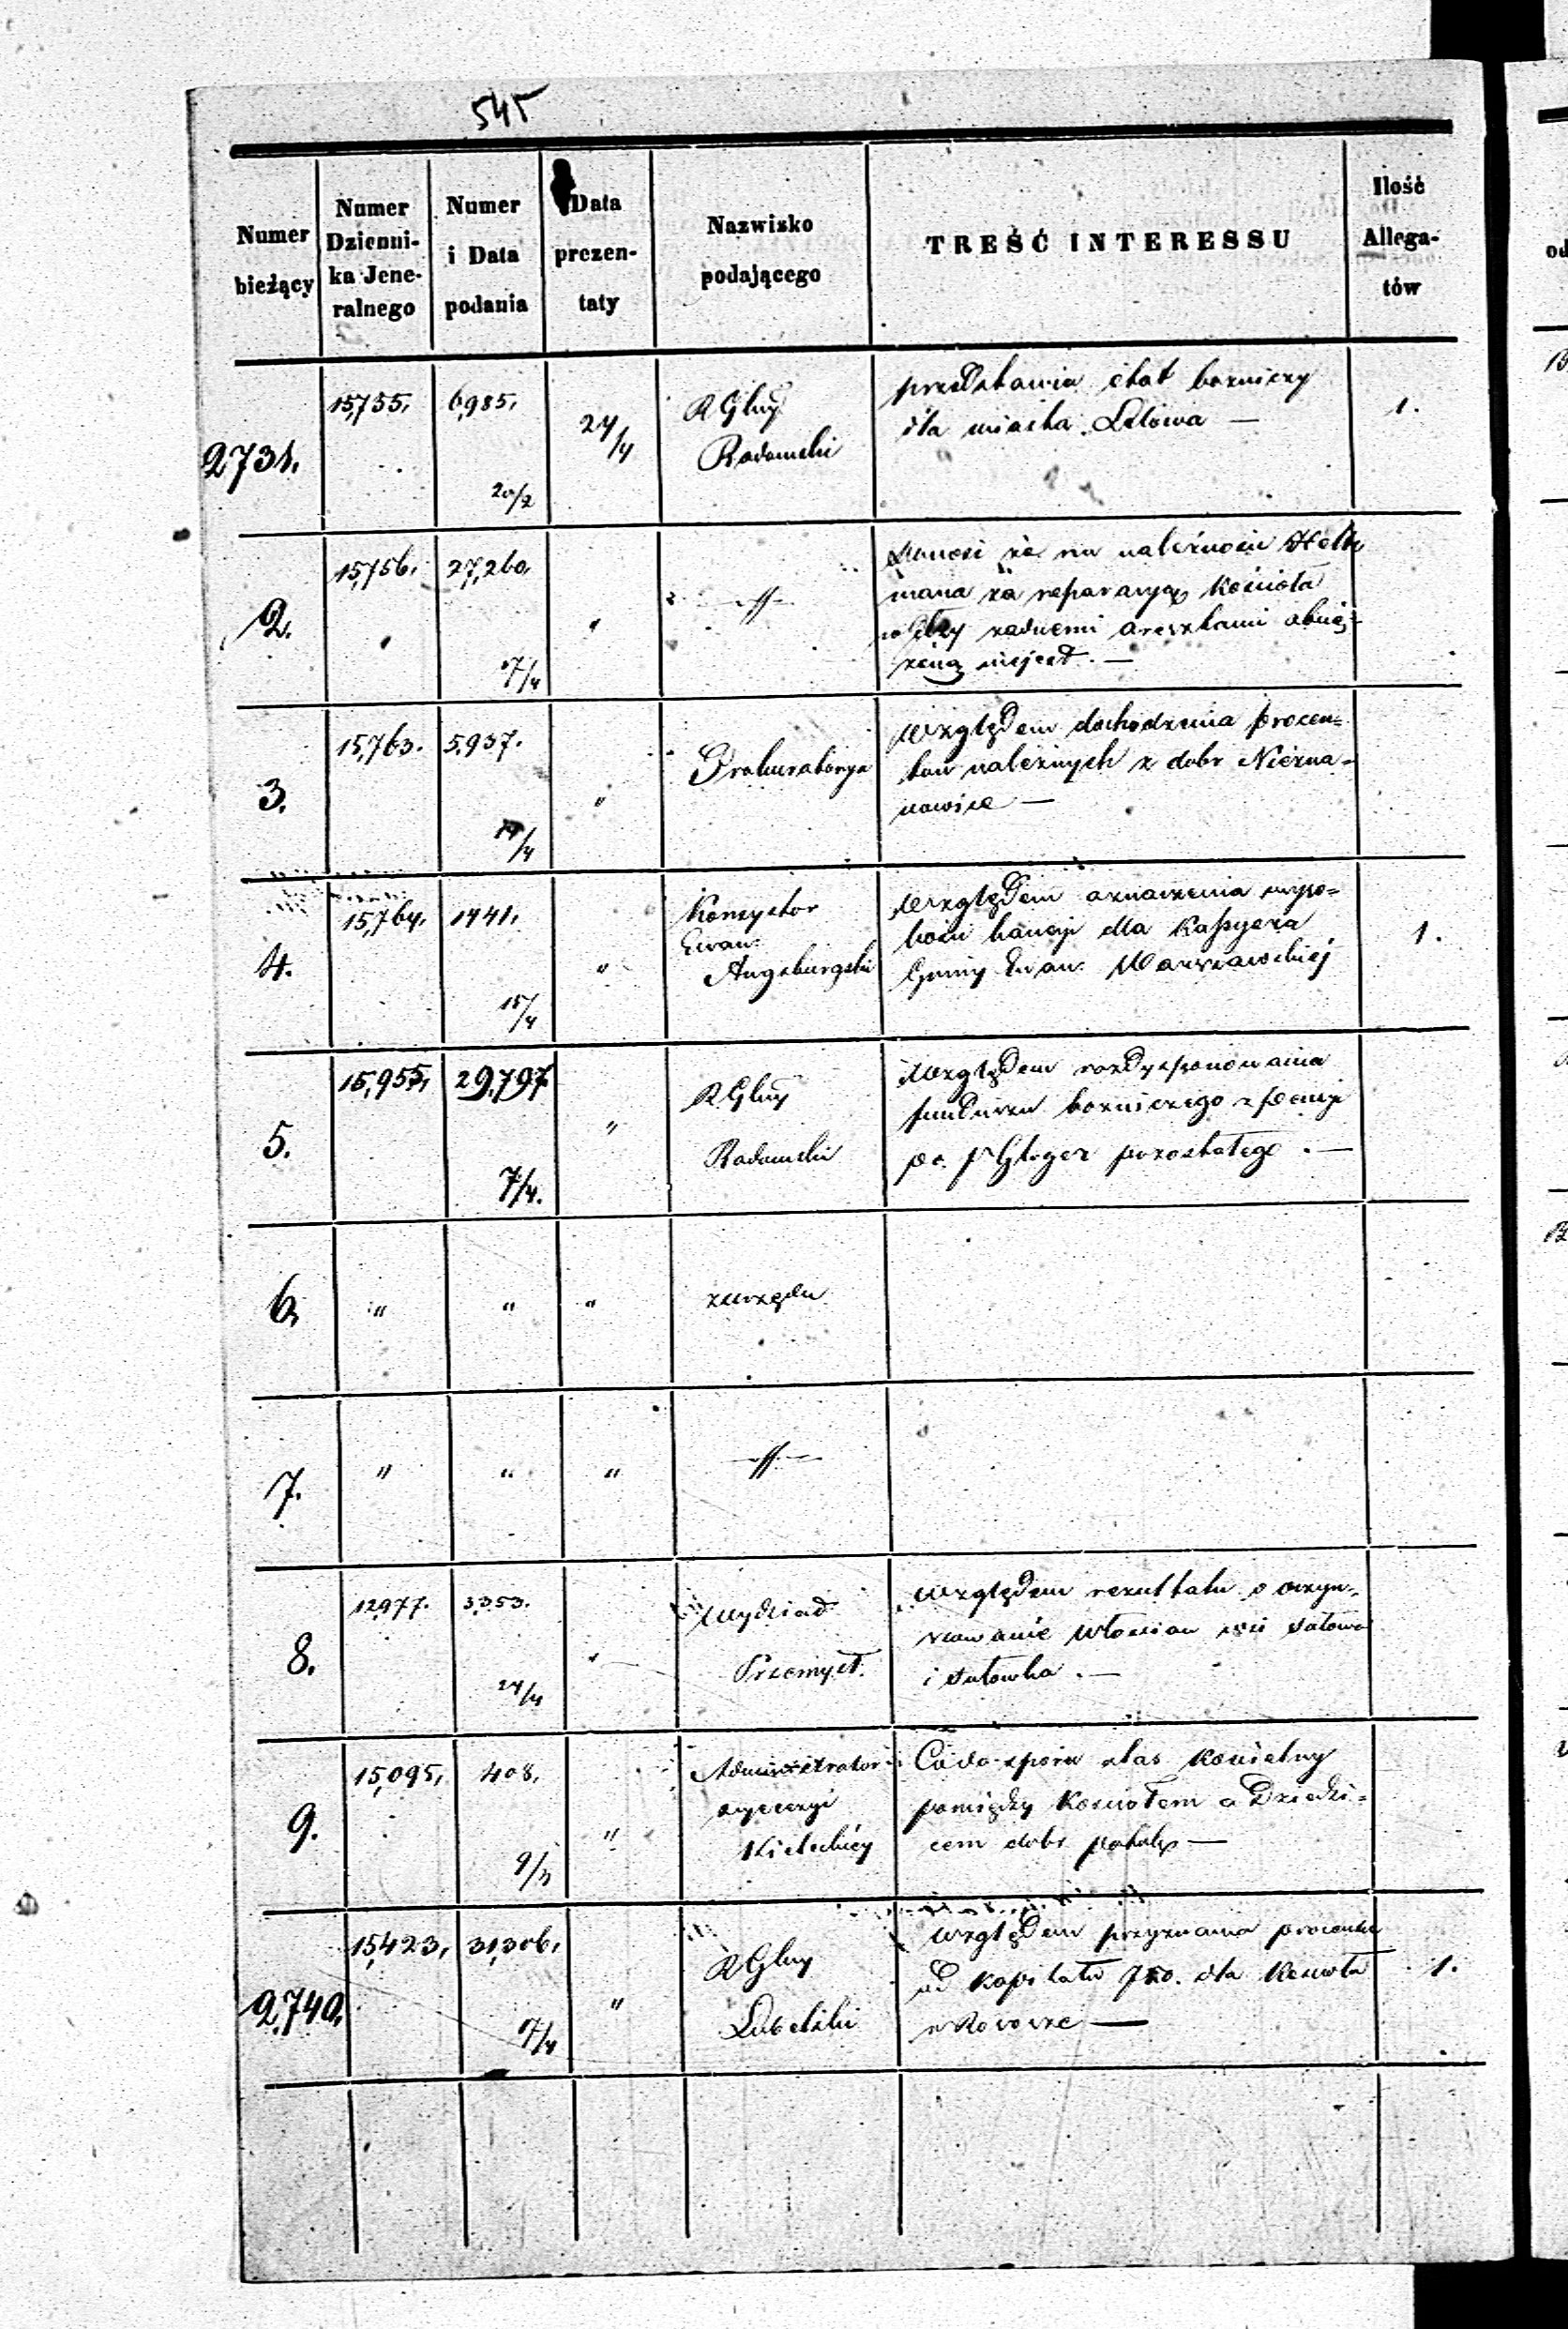 545
Numer bieżący
Numer Dzienni-ka Jene-ralnego
Numer i Data podania
Data prezen-taty
Nazwisko podającego
TREŚĆ INTERESSU
Ilość Allega-tów
2731. 15,755. 6,985. 20/2 24/4
R Glny
Radomski
przedstawia etat bozniczy
dla miasta Lelowa —
1.
2. 15,756. 27,260. 17/4 "
donosi że na należności
mana za reparacyą Kościoła
żadnemi aresztami obcią-
żoną niejest. —
3. 15,763. 5,937. /4 "
Prokuratorya
względem dochodzenia procen=
tów należnych z dobr Niezna-
nowice —
4. 15,764. 1441. 15/4 "
Konsystor
Ewan:
Augsburgski
względem oznaczenia wyso=
kości kaucyi dla Kassyera
Gminy Ewan. Warszawskiej
1.
5. 15,955. 29,797. 7/4. "
R Glny
Radomski
względem rozdysponowania
funduszu bozniczego z pensyi
po Gloger pozostałego . —
6. " " "
z urzędu
7. " " "
8. 12,977. 3,353. 24/4 "
Wydział
Przemysł.
względem rezultatu o oczyn-
szowanie włoscian wsi
i . —
9. 15,095. 408. 9/3 "
Administrator
dyecezyi
Kieleckiey
Co do sporu o las Kościelny
pomiędzy Kosciołem a Dziedzi=
cem dobr —
2,740. 15,423. 31,306. 17/4 "
R Glny
Lubelski
względem przyznania procentu
od kapitału dla Kościoła
—
1.